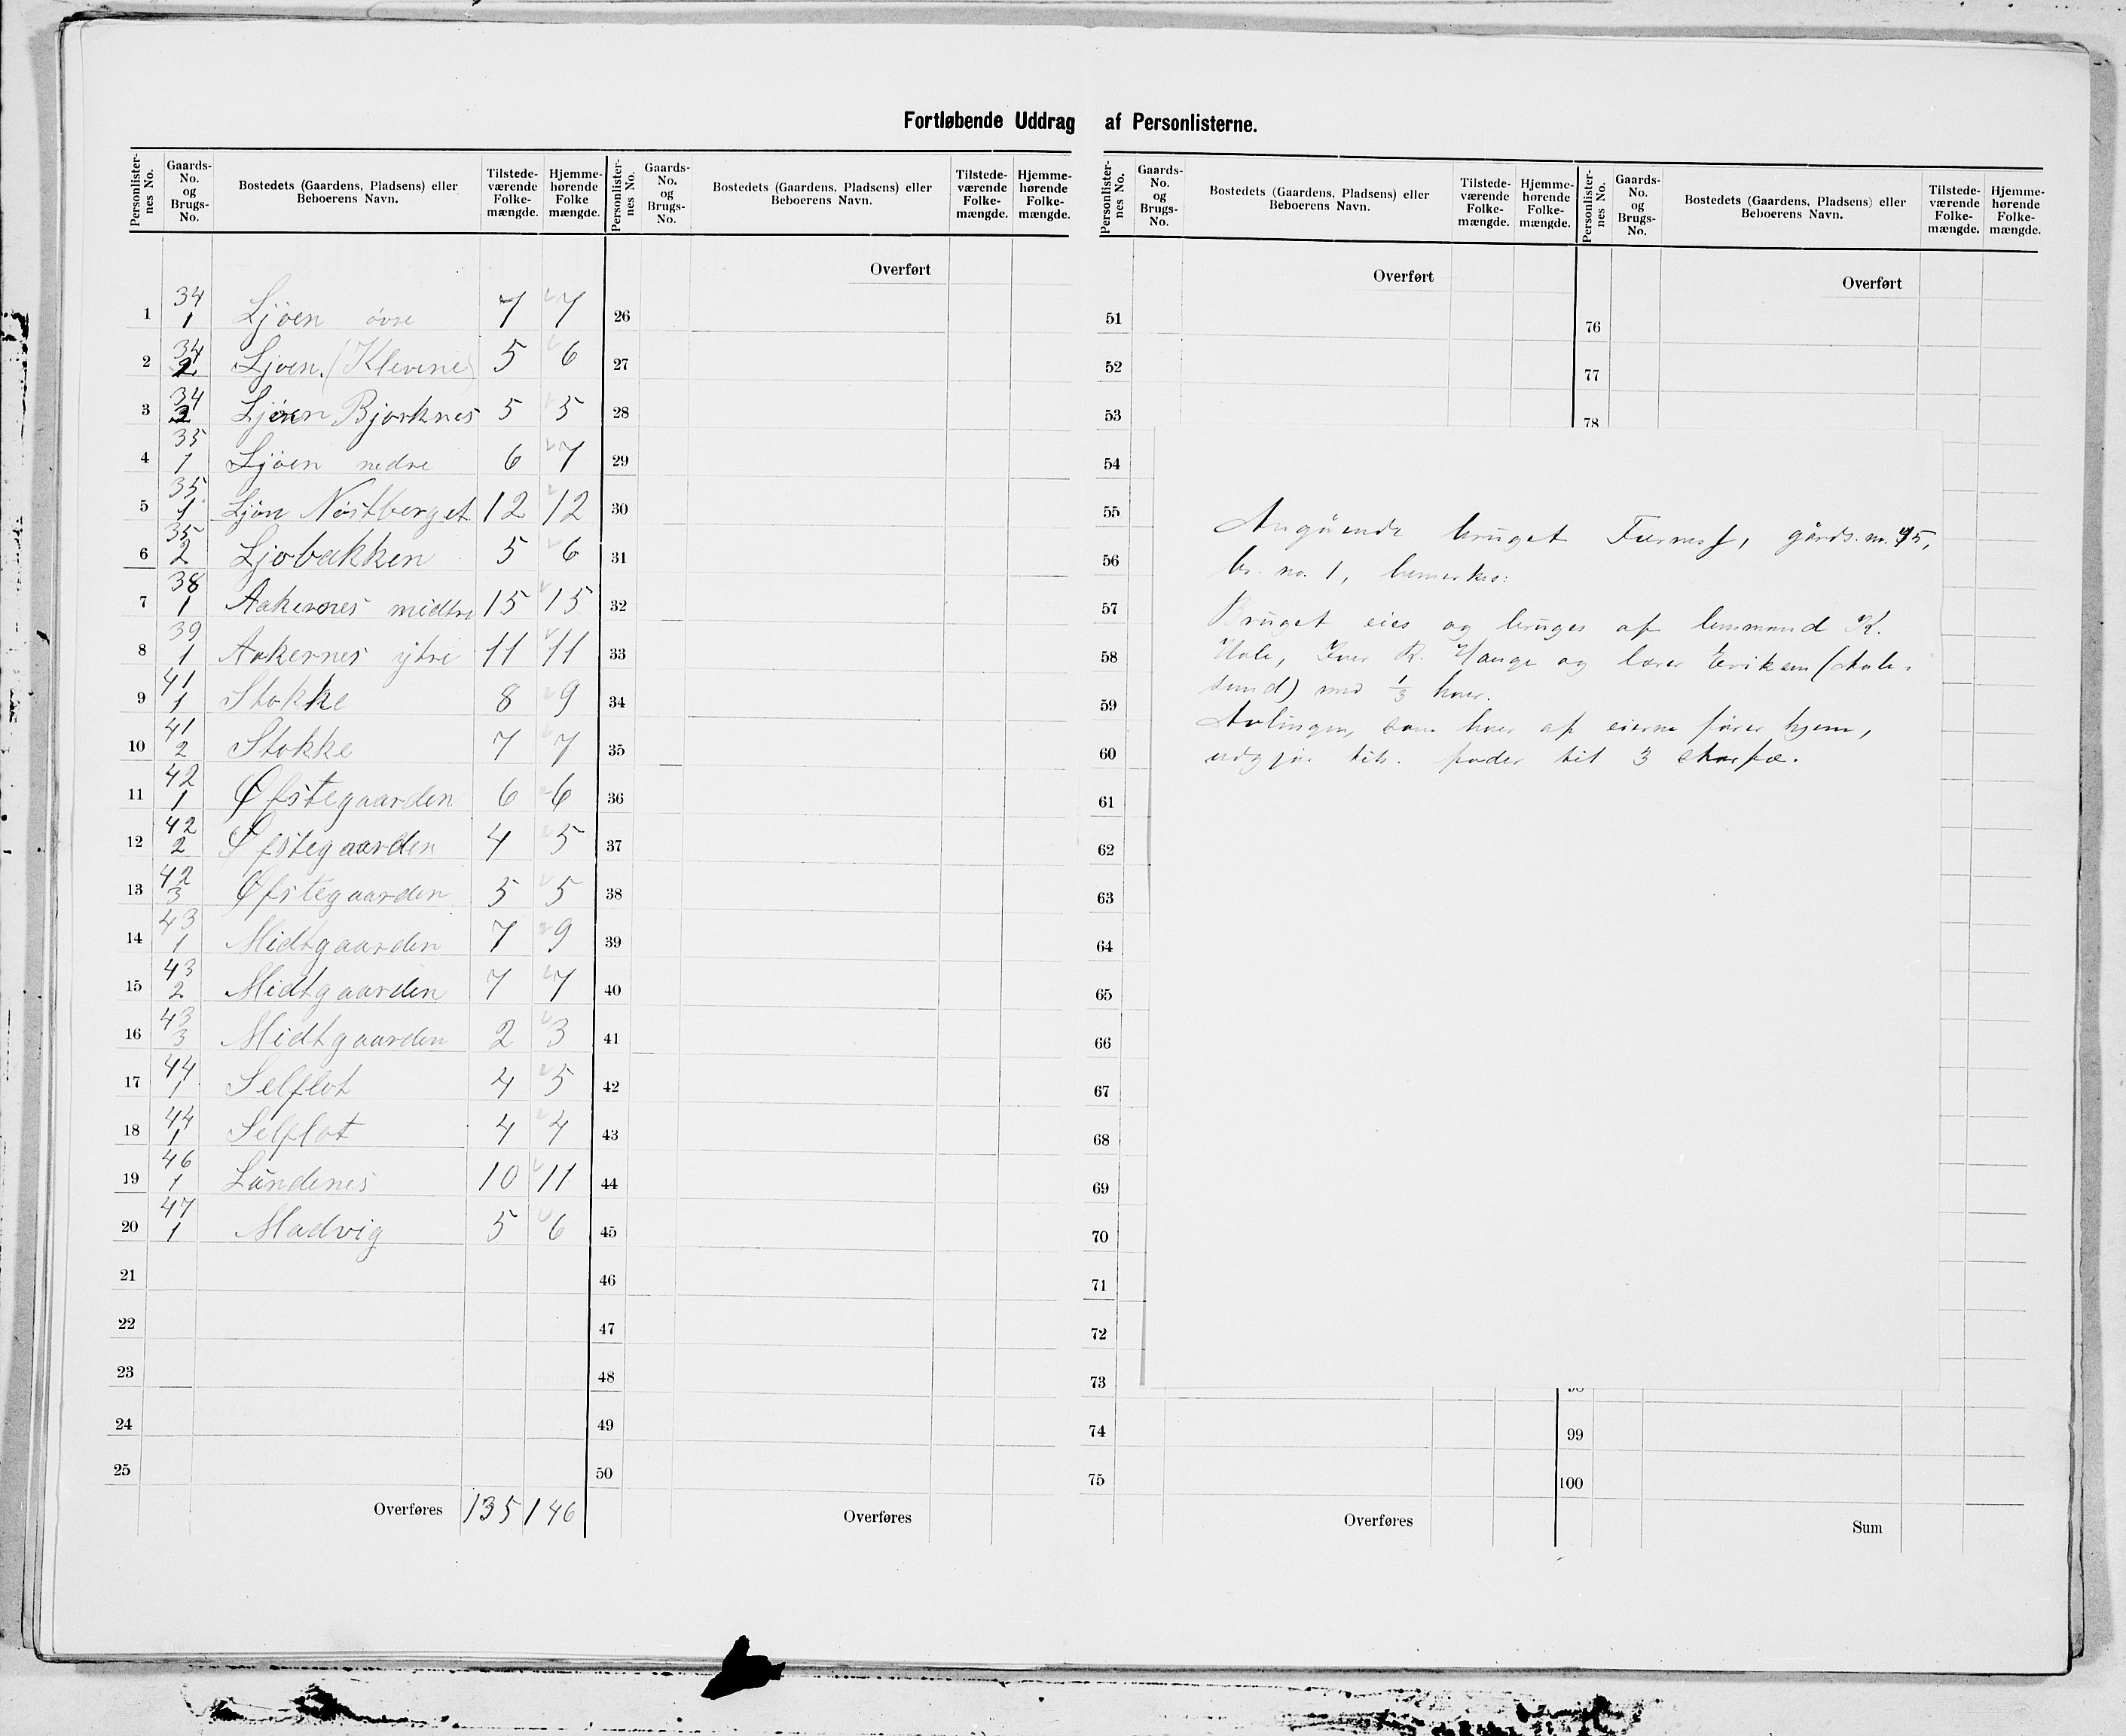 Fortløbende Uddrag af Personlisterne.
Personlister-nes No. Gaards-No. og Brugs-No. Bostedets (Gaardens, Pladsens) eller Beboerens Navn. Tilstede-værende Folke-mængde. Hjemme-hørende Folke mængde.
Personlister-nes No. Gaards-No. og Brugs-No. Bostedets (Gaardens, Pladsens) eller Beboerens Navn. Tilstede-værende Folke-mængde. Hjemme-hørende Folke-mængde.
Personlister-nes No. Gaards-No. og Brugs-No. Bostedets (Gaardens, Pladsens) eller Beboerens Navn. Tilstede-værende Folke-mængde. Hjemme-hørende Folke-mængde.
Personlister-nes No. Gaards-No. og Brugs-No. Bostedets (Gaardens, Pladsens) eller Beboerens Navn. Tilstede-værende Folke-mængde. Hjemme-hørende Folke-mængde.
1 34 1 Ljöen övre 7 7
2 34 2 Ljöen (Klevene) 5 6
3 34 3 Ljöen Bjorknes 5 5
4 35 1 Ljöen nedre 6 7
5 35 1 Ljön Nöstberget 12 12
6 35 2 Ljobakken 5 6
7 38 1 Aakernes midtre 15 15
8 39 1 Aakernes ytre 11 11
9 41 1 Stokke 8 9
10 41 2 Stokke 7 7
11 42 1 Øfstegaarden 6 6
12 42 2 Øfstegaarden 4 5
13 42 3 Øfstegaarden 5 5
14 43 1 Midtgaarden 7 9
15 43 2 Midtgaarden 7 7
16 43 3 Midtgaarden 2 3
17 44 1 Selflot 4 5
18 44 1 Selflot 4 4
19 46 1 Lundenes 10 11
20 47 1 Madvig 5 6
21
22
23
24
25
Overføres 135 146
Overført
26
27
28
29
30
31
32
33
34
35
36
37
38
39
40
41
42
43
44
45
46
47
48
49
50
Overføres
Overført
51
52
53
54
55
56
57
58
59
60
61
62
63
64
65
66
67
68
69
70
71
72
73
74
75
Overføres
Overført
76
77
78
99
100
Sum
Angående bruget Furness, gårds.nr. 45,
br. no. 1, bemerkes:
Bruget eies og bruges af lensmand K.
Hole, Iver R. Hauge og lærer Eriksen (Aale-
sund) med 1/3 hver.
Avlingen, som hver af eierne fører hjem,
udgjør foder til 3 storfæ.